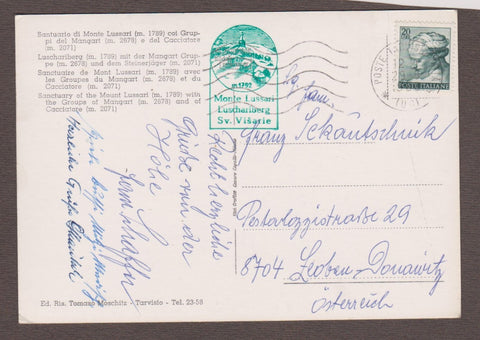 Santuario di Monte Lussari (m. 1789) coi Grup-
pi del Mangart (m. 2678) e del Cacciatore
(m. 2071)
Luschariberg (m. 1789) mit der Mangart Grup-
pe (m. 2678) und dem Steinerjäger (m. 2071)
Sanctuaire de Mont Lussari (m. 1789) avec
les Groupes du Mangart (m. 2678) et du
Cacciatore (m. 2071)
Sanctuary of the Mount Lussari (m. 1789) with
the Groups of Mangart (m. 2678) and of
Cacciatore (m. 2071)
m. 1792
Monte Lussari
Luschariberg
Sv. Višarje
20
POSTE ITALIANE
POSTE
Fam.
Franz Sekautschnik
Pestalozzistraße 29
8704 Leoben-Donawitz
Österreich
Recht herzliche
Grüße von der
Höhe
Herzliche Grüße
Ed. Ris. Tomaso Moschitz - Tarvisio - Tel. 23-58